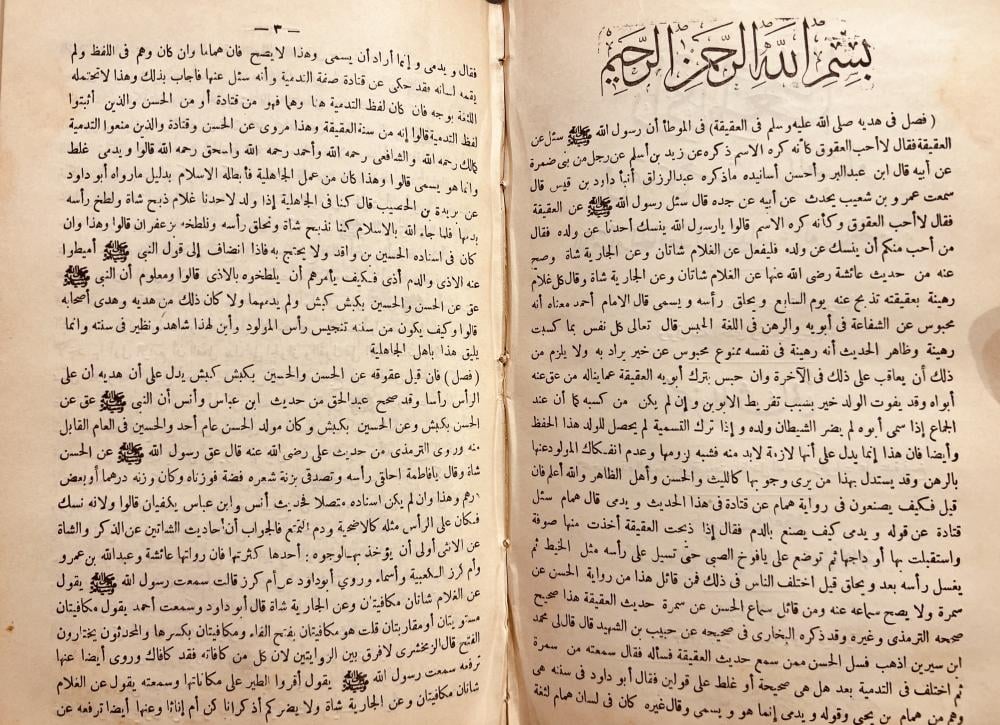 بسم الله الرحمن الرحيم
( فصل فى هديه صلى الله عليه وسلم فى العقيقة) فى الموطأ أن رسول الله ﷺ سئل عن
العقيقة فقال لاأحب العقوق كأنه كره الاسم ذكره عن زيد بن أسلم عن رجل من بنى ضمرة
عن أبيه قال ابن عبدالبر وأحسن أسانيده ماذكره عبدالرزاق أنبأ داود بن قيس قال
سمعت عمرو بن شعيب يحدث عن أبيه عن جده قال سئل رسول الله ﷺ عن العقيقة
فقال لاأحب العقوق وكأنه كره الاسم قالوا يارسول الله ينسك أحدنا عن ولده فقال
من أحب منكم أن ينسك عن ولده فليفعل عن الغلام شاتان وعن الجارية شاة وصح
عنه من حديث عائشة رضى الله عنها عن الغلام شاتان وعن الجارية شاة وقال كل غلام
رهينة بعقيقته تذبح عنه يوم السابع ويحلق رأسه ويسمى قال الامام أحمد معناه أنه
محبوس عن الشفاعة فى أبويه والرهن فى اللغة الحبس قال تعالى كل نفس بما كسبت
رهينة وظاهر الحديث أنه رهينة فى نفسه ممنوع محبوس عن خير يراد به ولا يلزم من
ذلك أن يعاقب على ذلك فى الآخرة وان حبس بترك أبويه العقيقة عمايناله من عق عنه
أبواه وقد يفوت الولد خير بسبب تفريط الابوين وإن لم يكن من كسبه كما أن عند
الجماع إذا سمى أبوه لم يضر الشيطان ولده وإذا ترك التسمية لم يحصل للولد هذا الحفظ
وأيضا فان هذا إنما يدل على أنها لازمة لابد منه فشبه لزومها وعدم انفكاك المولودعنها
بالرهن وقد يستدل بهذا من يرى وجوبها كالليث والحسن وأهل الظاهر والله أعلم فان
قيل فكيف يصنعون فى رواية همام عن قتادة فى هذا الحديث ويدمى قال همام سئل
قتادة عن قوله ويدمى كيف يصنع بالدم فقال إذا ذبحت العقيقة أخذت منها صوفة
واستقبلت بها أوداجها ثم توضع على يافوخ الصبى حتى تسيل على رأسه مثل الخيط ثم
يغسل رأسه بعد ويحلق قيل اختلف الناس فى ذلك فمن قائل هذا من رواية الحسن عن
سمرة ولا يصح سماعه عنه ومن قائل سماع الحسن عن سمرة حديث العقيقة هذا صحيح
صححه الترمذى وغيره وقد ذكره البخارى فى صحيحه عن حبيب بن الشهيد قال قال لى محمد
ابن سيرين اذهب فسل الحسن ممن سمع حديث العقيقة فسأله فقال سمعته من سمرة
ثم اختلف فى التدمية بعد هل هى صحيحة أو غلط على قولين فقال أبو داود فى سننه هى
وهم من همام بن يحيى وقوله ويدمى إنما هو ويسمى وقال غيره كان فى لسان همام لثغة
— ٣ —
فقال ويدمى وإنما أراد أن يسمى وهذا لايصح فان هماما وان كان وهم فى اللفظ ولم
يقمه لسانه فقد حكى عن قتادة صفة التدمية وأنه سئل عنها فاجاب بذلك وهذا لاتحتمله
اللثغة بوجه فان كان لفظ التدمية هنا وهما فهو من قتادة أو من الحسن والذين أثبتوا
لفظ التدمية قالوا إنه من سنة العقيقة وهذا مروى عن الحسن وقتادة والذين منعوا التدمية
كمالك رحمه الله والشافعى رحمه الله وأحمد رحمه الله واسحق رحمه الله قالوا ويدمى غلط
وانما هو يسمى قالوا وهذا كان من عمل الجاهلية فأبطله الاسلام بدليل مارواه أبو داود
عن بريدة بن الحصيب قال كنا فى الجاهلية إذا ولد لاحدنا غلام ذبح شاة ولطخ رأسه
بدمها فلما جاء الله بالاسلام كنا نذبح شاة ونحلق رأسه ونلطخه بزعفران قالوا وهذا وان
كان فى اسناده الحسين بن واقد ولا يحتج به فاذا انضاف إلى قول النبى ﷺ أميطوا
عنه الاذى والدم أذى فكيف يأمرهم أن يلطخوه بالاذى قالوا ومعلوم أن النبى ﷺ
عق عن الحسن والحسين بكبش كبش ولم يدمهما ولا كان ذلك من هديه وهدى أصحابه
قالوا وكيف يكون من سنته تنجيس رأس المولود وأين لهذا شاهد ونظير فى سنته وانما
يليق هذا باهل الجاهلية
( فصل ) فان قيل عقوقه عن الحسن والحسين بكبش كبش يدل على أن هديه أن على
الرأس رأسا وقد صحح عبدالحق من حديث ابن عباس وأنس أن النبى ﷺ عق عن
الحسن بكبش وعن الحسين بكبش وكان مولد الحسن عام أحد والحسين فى العام القابل
منه وروى الترمذى من حديث على رضى الله عنه قال عق رسول الله ﷺ عن الحسن
شاة وقال يافاطمة احلقى رأسه وتصدقى بزنة شعره فضة فوزناه وكان وزنه درهما أو بعض
درهم وهذا وان لم يكن اسناده متصلا فحديث أنس وابن عباس يكفيان قالوا ولانه نسك
فكان على الرأس مثله كالاضحية ودم التمتع فالجواب أن أحاديث الشاتين عن الذكر والشاة
عن الانثى أولى أن يؤخذ بها لوجوه : أحدها كثرتها فان رواتها عائشة وعبدالله بن عمرو
وأم كرز الكعبية وأسماء وروى أبوداود عن أم كرز قالت سمعت رسول الله ﷺ يقول
عن الغلام شاتان مكافيتان وعن الجارية شاة قال أبو داود وسمعت أحمد يقول مكافيتان
مستويتان أومقاربتان قلت هو مكافيتان بفتح الفاء ومكافيتان بكسرها والمحدثون يختارون
الفتح قال الزمخشرى لافرق بين الروايتين لان كل من كافاته فقد كافاك وروى أيضا عنها
ترفعه سمعت رسول الله ﷺ يقول أقروا الطير على مكاناتها وسمعته يقول عن الغلام
شاتان مكافيتان وعن الجارية شاة ولا يضركم أذكرانا كن أم إناثا وعنها أيضا ترفعه عن